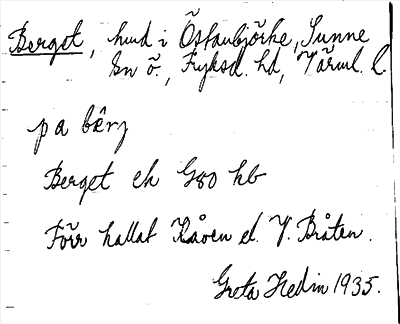 Berget, hmd i Östanbjörke, Sunne
sn ö., Fryksd. hd, Värml. l.
pa bærj
Berget ek G80 hb
Förr kallat Kåven el. V. Bråten.
Greta Hedin 1935.